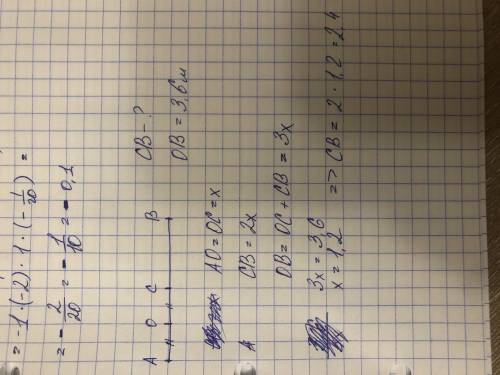 = -1 · (-2) · 1 · (-1/20) =
= -2/20 = -1/10 = -0,1
A O C B
CB - ?
OB = 3,6 м
AO = OC = x
CB = 2x
OB = OC + CB = 3x
3x = 3,6
x = 1,2 => CB = 2 · 1,2 = 2,4